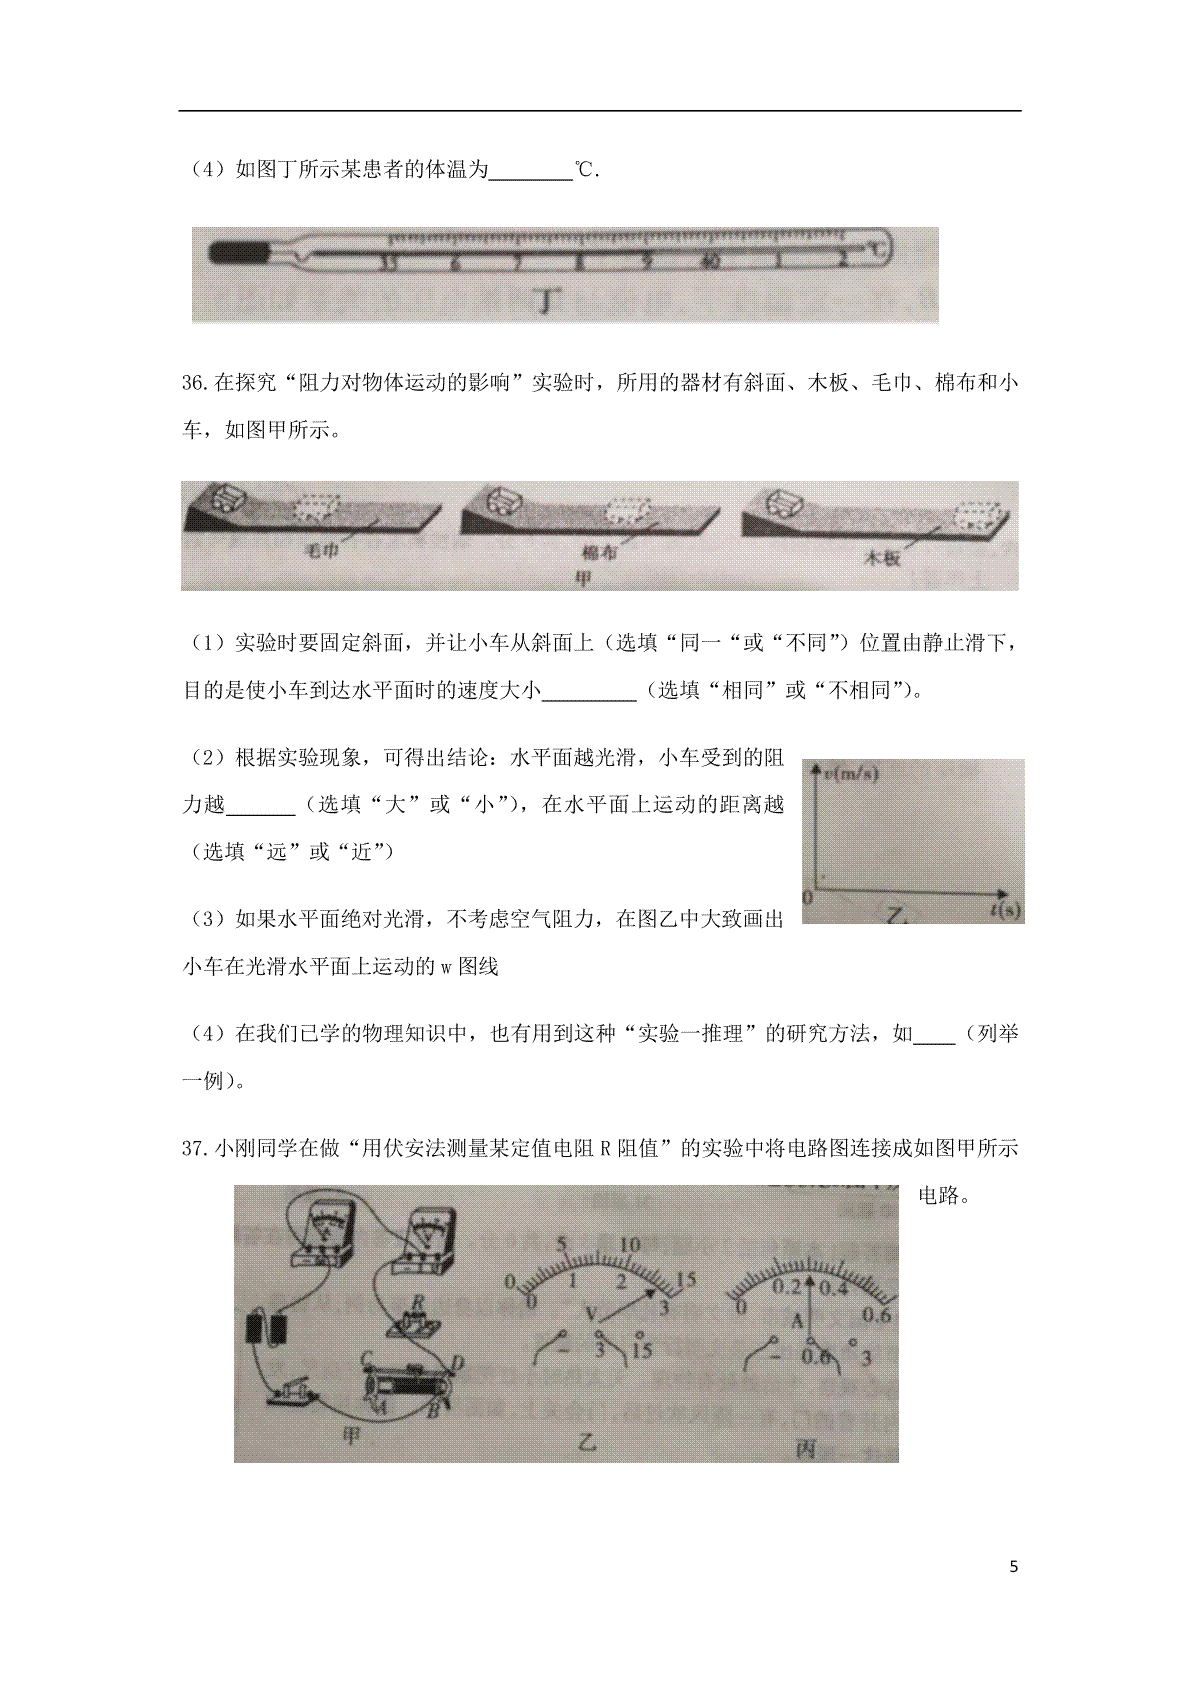 （4）如图丁所示某患者的体温为________℃.
35 6 7 8 9 40 1 2 ℃
丁
36.在探究“阻力对物体运动的影响”实验时，所用的器材有斜面、木板、毛巾、棉布和小
车，如图甲所示。
毛巾 棉布 木板
甲
（1）实验时要固定斜面，并让小车从斜面上（选填“同一“或“不同”）位置由静止滑下，
目的是使小车到达水平面时的速度大小_________（选填“相同”或“不相同”）。
（2）根据实验现象，可得出结论：水平面越光滑，小车受到的阻
力越______（选填“大”或“小”），在水平面上运动的距离越
（选填“远”或“近”）
v(m/s)
0 t(s)
乙
（3）如果水平面绝对光滑，不考虑空气阻力，在图乙中大致画出
小车在光滑水平面上运动的 w 图线
（4）在我们已学的物理知识中，也有用到这种“实验一推理”的研究方法，如____（列举
一例）。
37.小刚同学在做“用伏安法测量某定值电阻 R 阻值”的实验中将电路图连接成如图甲所示
电路。
A V
R
C D
A B
甲
0 5 10 15
0 1 2 3
V
- 3 15
乙
0 0.2 0.4 0.6
A
- 0.6 3
丙
5